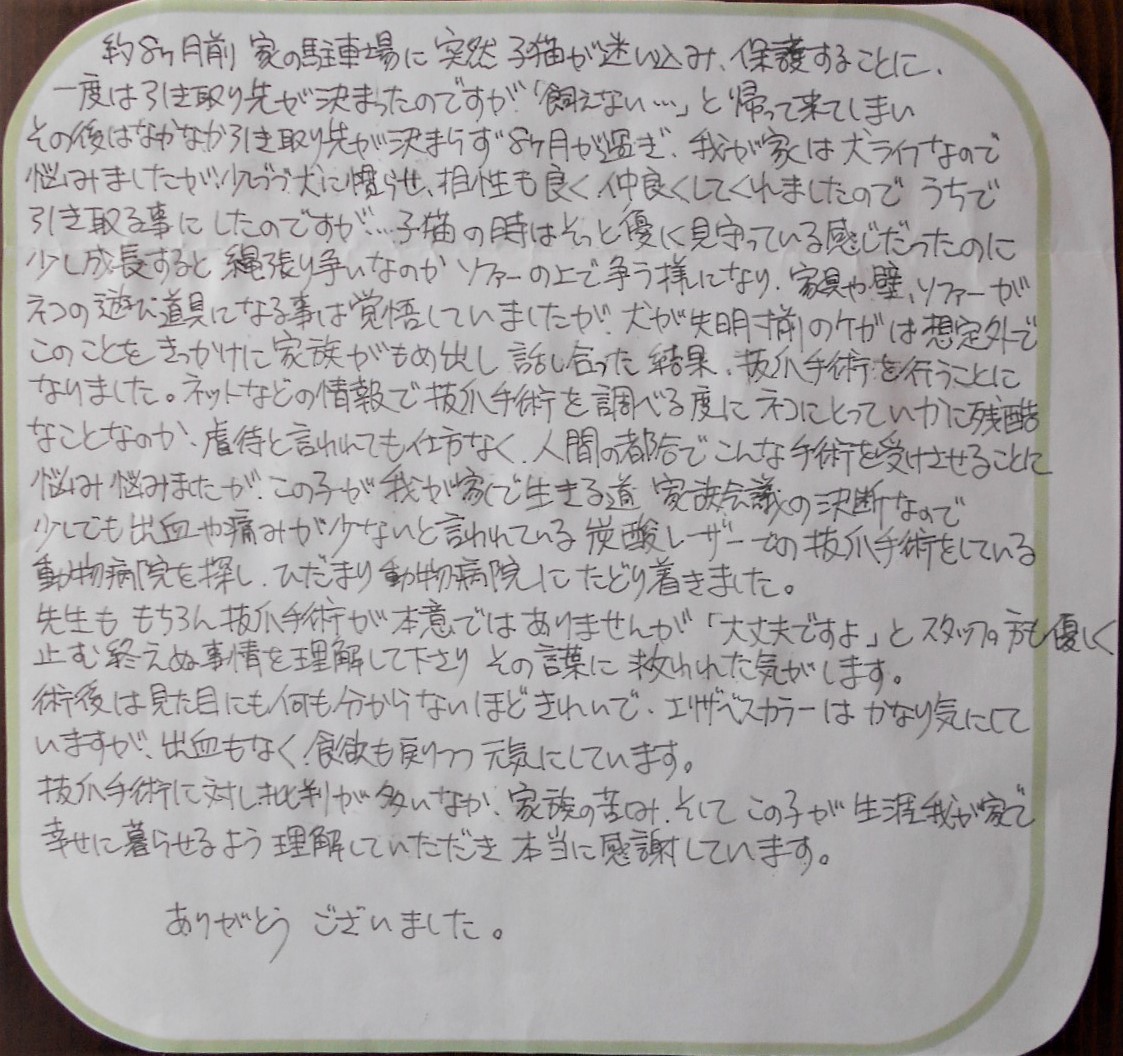 約8ヶ月前 家の駐車場に突然子猫が迷い込み、保護することに、
一度は引き取り先が決まったのですが「飼えない…」と帰って来てしまい
その後はなかなか引き取り先が決まらず8ヶ月が過ぎ、我が家は犬ライフなので
悩みましたが、少しづつ犬に慣らせ、相性も良く、仲良くしてくれましたので うちで
引き取る事にしたのですが…子猫の時はそっと優しく見守っている感じだったのに
少し成長すると 縄張り争いなのか ソファーの上で争う様になり、家具や壁、ソファーが
ネコの遊び道具になる事は覚悟していましたが、犬が失明寸前のケガは想定外で
このことをきっかけに家族がもめ出し 話し合った結果、抜爪手術を行うことに
なりました。ネットなどの情報で抜爪手術を調べる度に ネコにとっていかに残酷
なことなのか、虐待と言われても仕方なく、人間の都合でこんな手術を受けさせることに
悩み悩みましたが、この子が我が家で生きる道 家族会議の決断なので
少しでも出血や痛みが少ないと言われている炭酸レーザーでの抜爪手術をしている
動物病院を探し、ひだまり動物病院にたどり着きました。
先生も もちろん抜爪手術が本意ではありませんが「大丈夫ですよ」とスタッフの方も優しく
止む終えぬ事情を理解して下さり その言葉に救われた気がします。
術後は見た目にも何も分からないほどきれいで、エリザベスカラーは かなり気にして
いますが、出血もなく、食欲も戻りつつ 元気にしています。
抜爪手術に対し批判が多いなか、家族の苦しみ、そして この子が生涯我が家で
幸せに暮らせるよう理解していただき 本当に感謝しています。
ありがとう ございました。